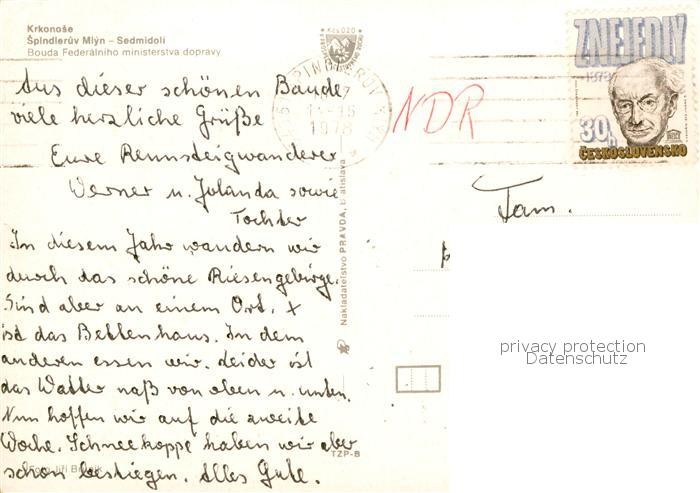 Krkonoše
Špindlerův Mlýn – Sedmidolí
Bouda Federálního ministerstva dopravy
Kčs 0,20
Aus dieser schönen Baude
viele herzliche Grüße
Eure Rennsteigwanderer
Werner u. Jolanda sowie
Tochter
In diesem Jahr wandern wir
durch das schöne Riesengebirge.
Sind aber an einem Ort. x
ist das Bettenhaus. In dem
anderen essen wir. Leider ist
das Wetter naß von oben u. unten.
Nun hoffen wir auf die zweite
Woche. Schneekoppe haben wir aber
schon bestiegen. Alles Gute.
Foto Jiří
Nakladatelství PRAVDA, Bratislava
TZP-B
ŠPINDLERŮV
1978
NDR
Z NEJEDLÝ
1878
30h
UNESCO
ČESKOSLOVENSKO
Fam.
privacy protection
Datenschutz